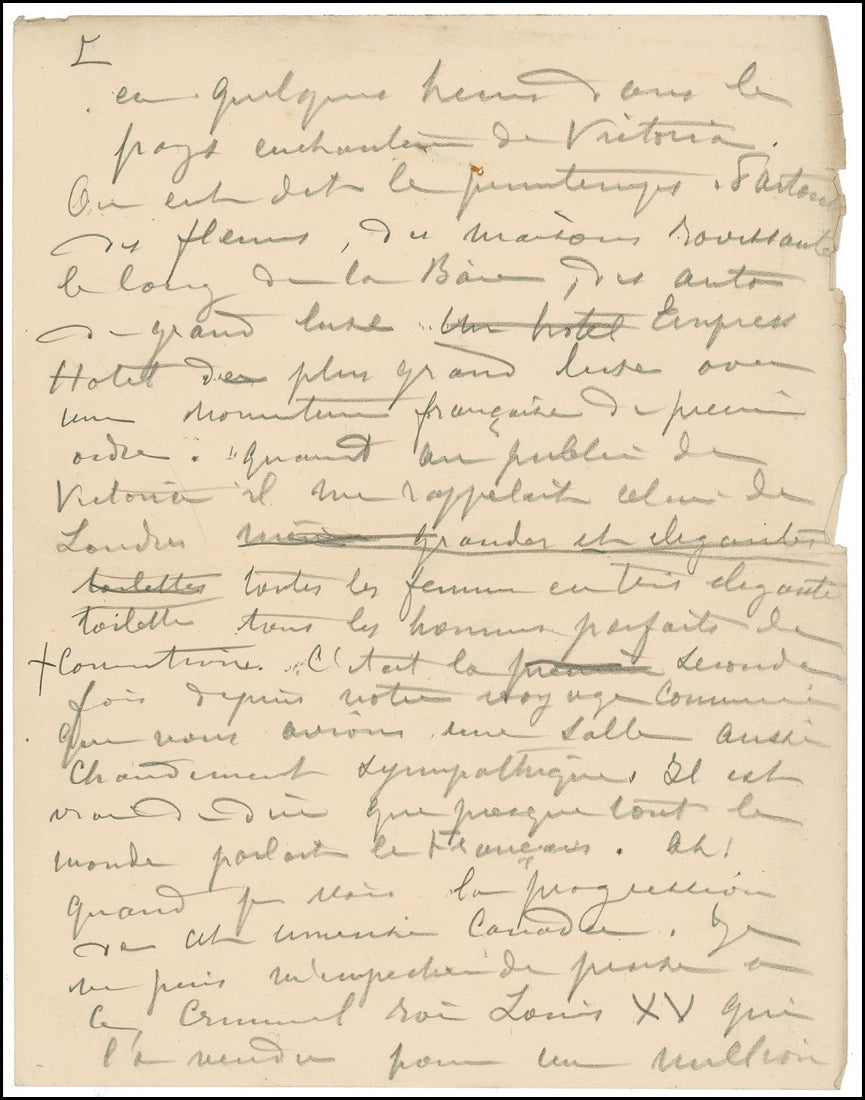 5
en quelques heures dans le
pays enchanteur de Victoria.
On est dit le printemps. Partout
des fleurs, des maisons ravissantes
le long de la Baie, des autos
de grand luxe. Un hotel Empress
Hotel du plus grand luxe avec
une nourriture française de premier
ordre. quant au public de
Victoria il me rappelait celui de
Londres même grandes et elegantes
toilettes toutes les femmes en tres elegante
toilette tous les hommes parfaits de
+ C'était la première seconde
fois depuis notre voyage commencé
que nous avions une salle aussi
chaudement sympathique. Il est
vrai de dire que presque tout le
monde parlait le Français. Ah!
quand je vois la progression
de cet immense Canada. Je
ne puis m'empecher de penser a
ce criminel roi Louis XV qui
l'a vendu pour un million